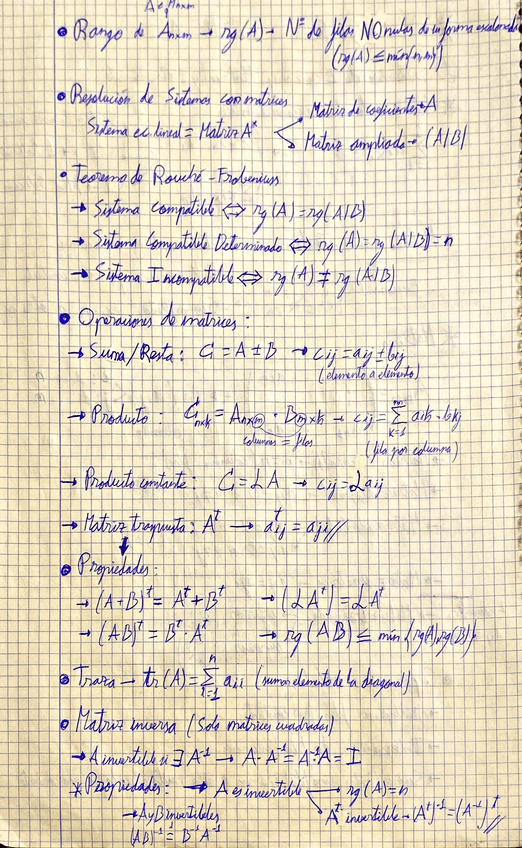 A ∈ Mnxm
• Rango de Anxm → rg(A) → Nº de filas NO nulas de la forma escalonada
(rg(A) ≤ min{n,m})
• Resolución de Sistemas con matrices
Matriz de coeficientes → A
Sistema ec. lineal = Matriz A*
Matriz ampliada → (A|B)
• Teorema de Rouché-Frobenius
→ Sistema compatible ⇔ rg(A) = rg(A|B)
→ Sistema Compatible Determinado ⇔ rg(A) = rg(A|B) = n
→ Sistema Incompatible ⇔ rg(A) ≠ rg(A|B)
• Operaciones de matrices:
→ Suma/Resta: C = A ± B → cij = aij ± bij
(elemento a elemento)
→ Producto: Cnxk = Anxm · Bmxk → cij = Σ_{k=1}^{m} aik · bkj
columnas = filas (fila por columna)
→ Producto constante: C = αA → cij = αaij
→ Matriz traspuesta: Aᵗ → aᵗij = aji//
• Propiedades:
→ (A+B)ᵗ = Aᵗ + Bᵗ → (αAᵗ) = αAᵗ
→ (AB)ᵗ = Bᵗ · Aᵗ → rg(AB) ≤ min{rg(A), rg(B)}
• Traza → tr(A) = Σ_{i=1}^{n} aii (suma elemento de la diagonal)
• Matriz inversa (Solo matrices cuadradas)
→ A invertible si ∃ A⁻¹ → A · A⁻¹ = A⁻¹ · A = I
* Propiedades: → A es invertible → rg(A) = n
→ A y B invertibles Aᵗ invertible → (Aᵗ)⁻¹ = (A⁻¹)ᵗ//
(AB)⁻¹ = B⁻¹A⁻¹